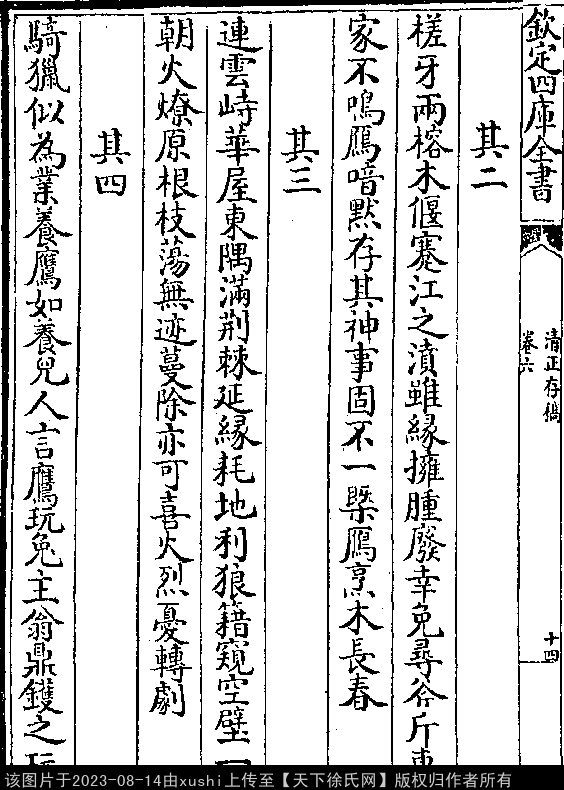 欽定四庫全書
清正存稿
卷六
十四
其二
槎牙兩榕木偃蹇江之濆雖緣擁腫廢幸免尋斧斤
家不鳴鴈喑默存其神事固不一槩鴈烹木長春
其三
連雲峙華屋東隅滿荆棘延縁耗地利狼籍窺空壁一
朝火燎原根枝蕩無迹蔓除亦可喜火烈憂轉劇
其四
騎獵似為業養鷹如養兒人言鷹玩兔主翁鼎鑊之
该图片于2023-08-14由xushi上传至【天下徐氏网】版权归作者所有